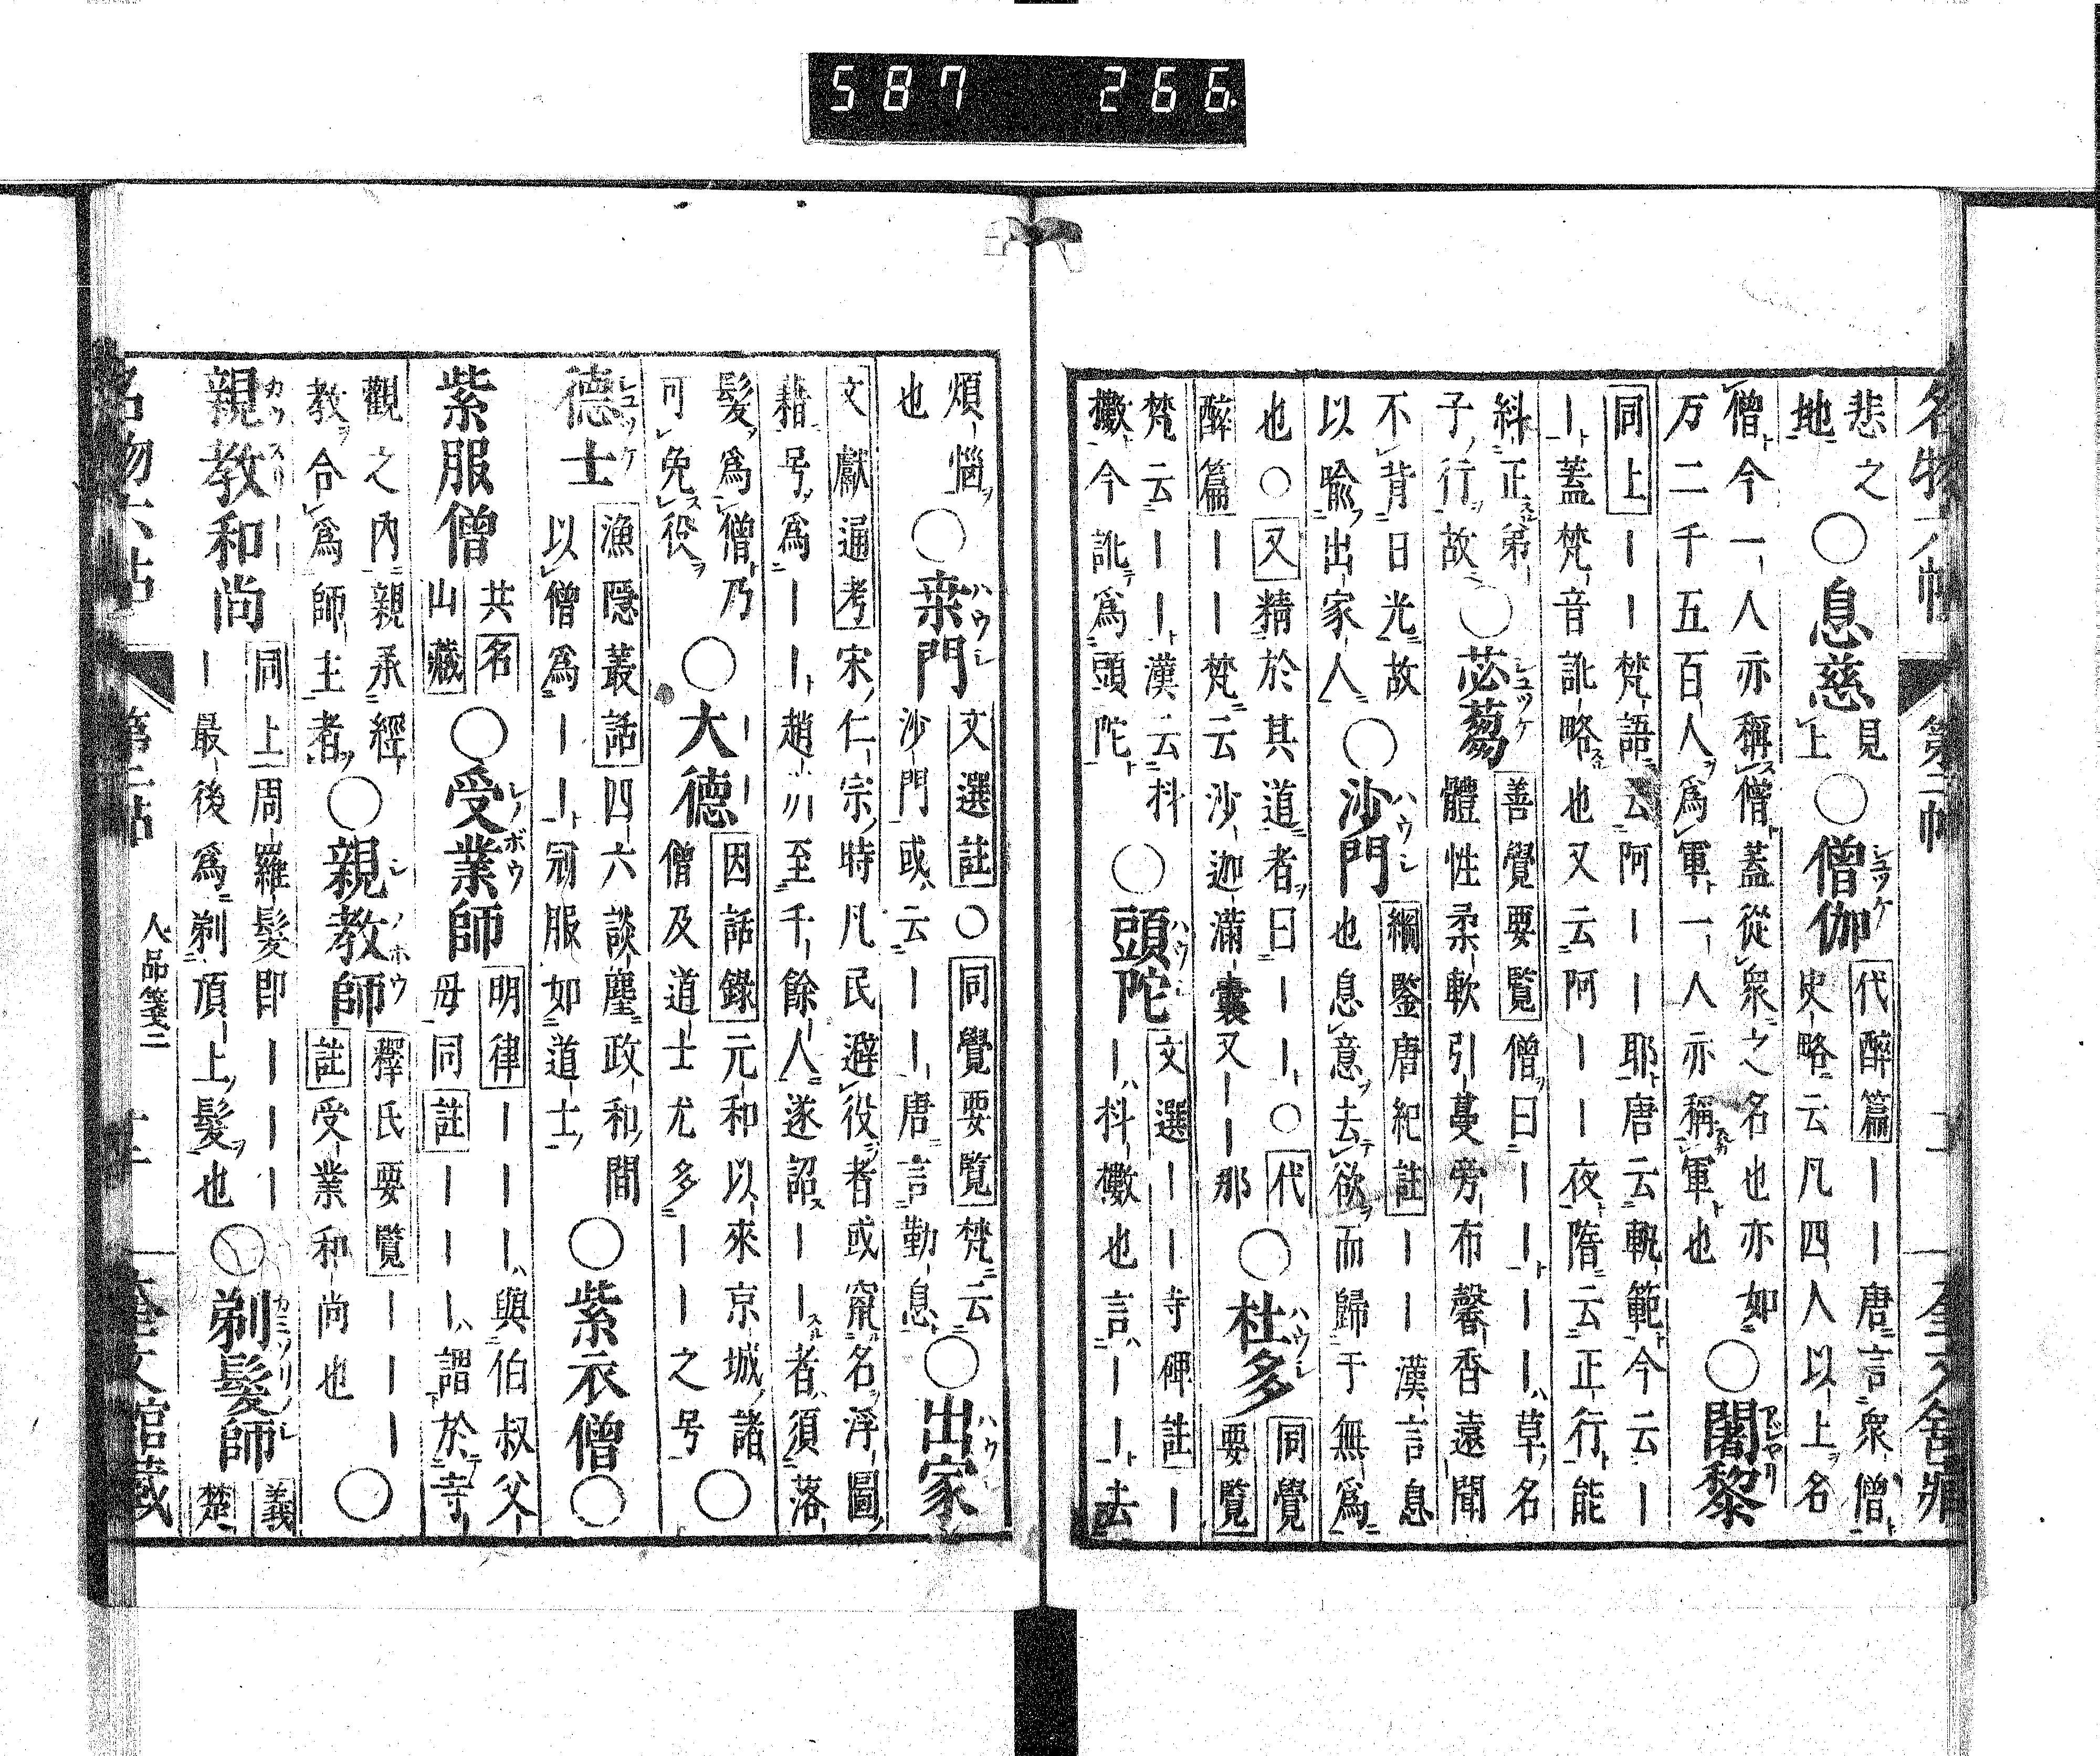 名物六帖 第二帖
悲之地○息慈見上○僧伽代醉篇｜｜唐言衆僧史略云凡四人以上名
僧今一人亦稱僧蓋從衆之名也亦如万二千五百人爲軍一人亦稱軍也○闍黎
同上｜｜梵語云阿｜｜耶唐云軌範今云｜｜蓋梵音訛略也又云阿｜｜夜隋云正行能
糾正弟子行故○苾蒭善覺要覧僧曰｜｜｜｜草名體性柔軟引蔓旁布馨香遠聞
不背日光故以喩出家人○沙門綱鑒唐紀註｜｜漢言息也息意去欲而歸于無爲
也○又精於其道者曰｜｜○代醉篇｜｜梵云沙迦滿囊又｜｜那○杜多同覺要覧
梵云｜｜漢云抖擻今訛爲頭陀○頭陀文選｜｜寺碑註｜｜抖擻也言｜｜去
煩惱也○桒門文選註○同覺要覧梵云沙門或云｜｜唐言勤息○出家
文獻通考宋仁宗時凡民避役者或竄名浮圖藉号爲｜｜趙州至千餘人遂詔｜｜者須落
髮爲僧乃可免役○大德因話錄元和以來京城諸僧及道士尤多｜｜之号○
德士漁隱叢話四六談麈政和間以僧爲｜｜冠服如道士○紫衣僧○
紫服僧共名山藏○受業師明律｜｜｜與伯叔父母同註｜｜｜謂於寺
觀之内親承經教合爲師主者○親教師釋氏要覧｜｜｜註受業和尚也○
親教和尚同上周羅髮即｜｜｜｜最後爲剃頂上髮也○剃髮師義楚
名物六帖 第二帖 人品箋三 奎文館藏
587 266